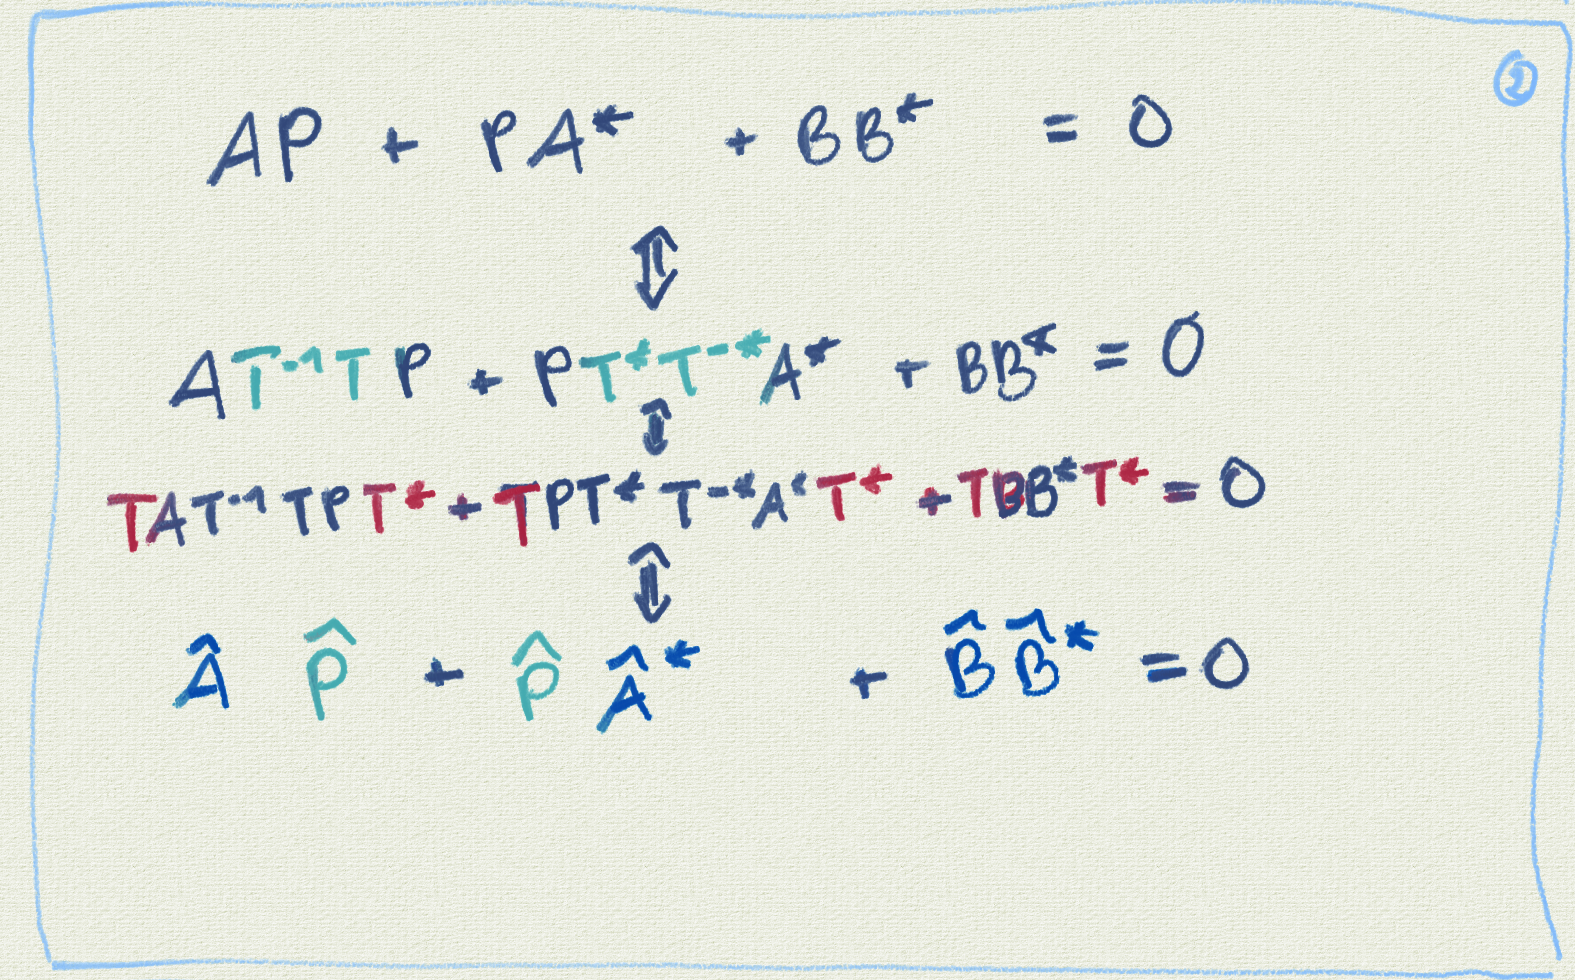 ②
AP + PA* + BB* = 0
⇕
AT⁻¹TP + PT*T⁻*A* + BB* = 0
⇕
TAT⁻¹TPT* + TPT*T⁻*A*T* + TBB*T* = 0
⇕
Â P̂ + P̂ Â* + B̂ B̂* = 0